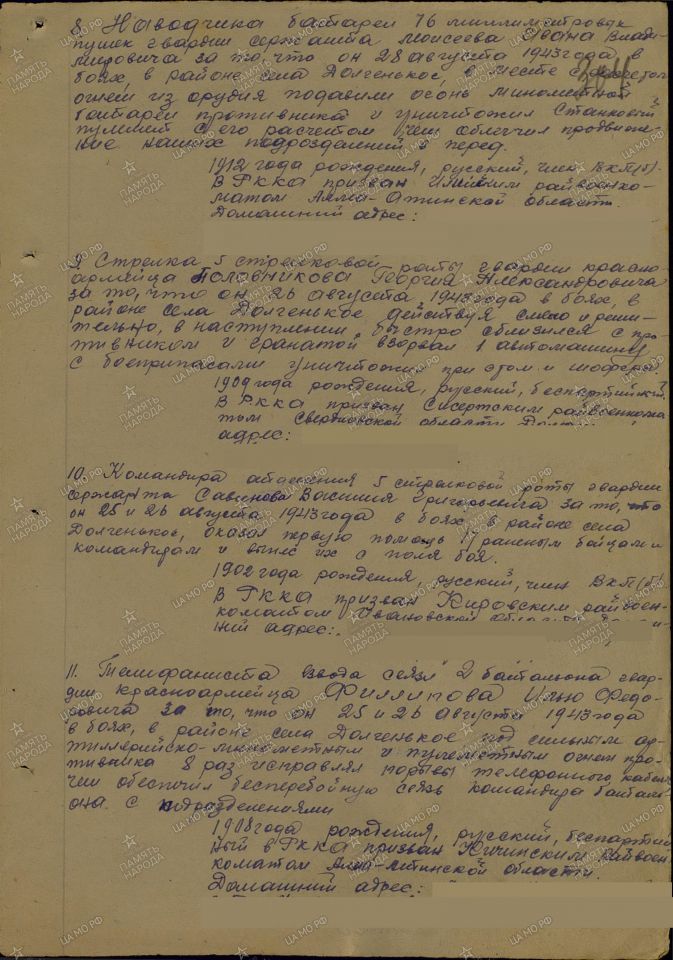 8. Наводчика батареи 76 миллиметровых
пушек гвардии сержанта Моисеева Ивана Влади-
мировича за то, что он 28 августа 1943 года в
боях, в районе села Долгенькое, вместе с расчетом
огнем из орудия подавили огонь минометной
батареи противника и уничтожил Станковый
пулемет с его расчетом чем облегчил продвиже-
ние наших подразделений в перед.
1912 года рождения, русский, член ВКП(б).
В РККА призван райвоенко-
матом Алма-Атинской области.
Домашний адрес:
9. Стрелка 5 стрелковой роты гвардии красно-
армейца Половникова Георгия Александровича
за то, что он 26 августа 1943 года в боях, в
районе села Долгенькое действуя смело и реши-
тельно, в наступлении быстро сблизился с про-
тивником и гранатой взорвал 1 автомашину
с боеприпасами уничтожив при этом и шофера.
1909 года рождения, русский, беспартийный.
В РККА призван Сысертским райвоенкома
том Свердловской области
адрес:
10. Командира отделения 5 стрелковой роты гвардии
сержанта Савинова Василия Григорьевича за то, что
он 25 и 26 августа 1943 года в боях, в районе села
Долгенькое, оказал первую помощь 17 раненым бойцам и
командирам и вынес их с поля боя.
1902 года рождения, русский, член ВКП(б).
В РККА призван Кировским райвоен-
коматом Ивановской области
ний адрес:
11. Телефаниста взвода связи 2 батальона гвар-
дии красноармейца Филлипова Илью Федо-
ровича за то, что он 25 и 26 августа 1943 года
в боях, в районе села Долгенькое под сильным ар-
тиллерийско-минометным и пулеметным огнем про-
тивника 8 раз исправлял порывы телефонного кабеля
чем обеспечил бесперебойную связь командира баталь
она с подразделениями
1908 года рождения, русский, беспартий
ный в РККА призван райвоен
коматом Алма-Атинской области.
Домашний адрес:
ПАМЯТЬ НАРОДА
ЦА МО РФ